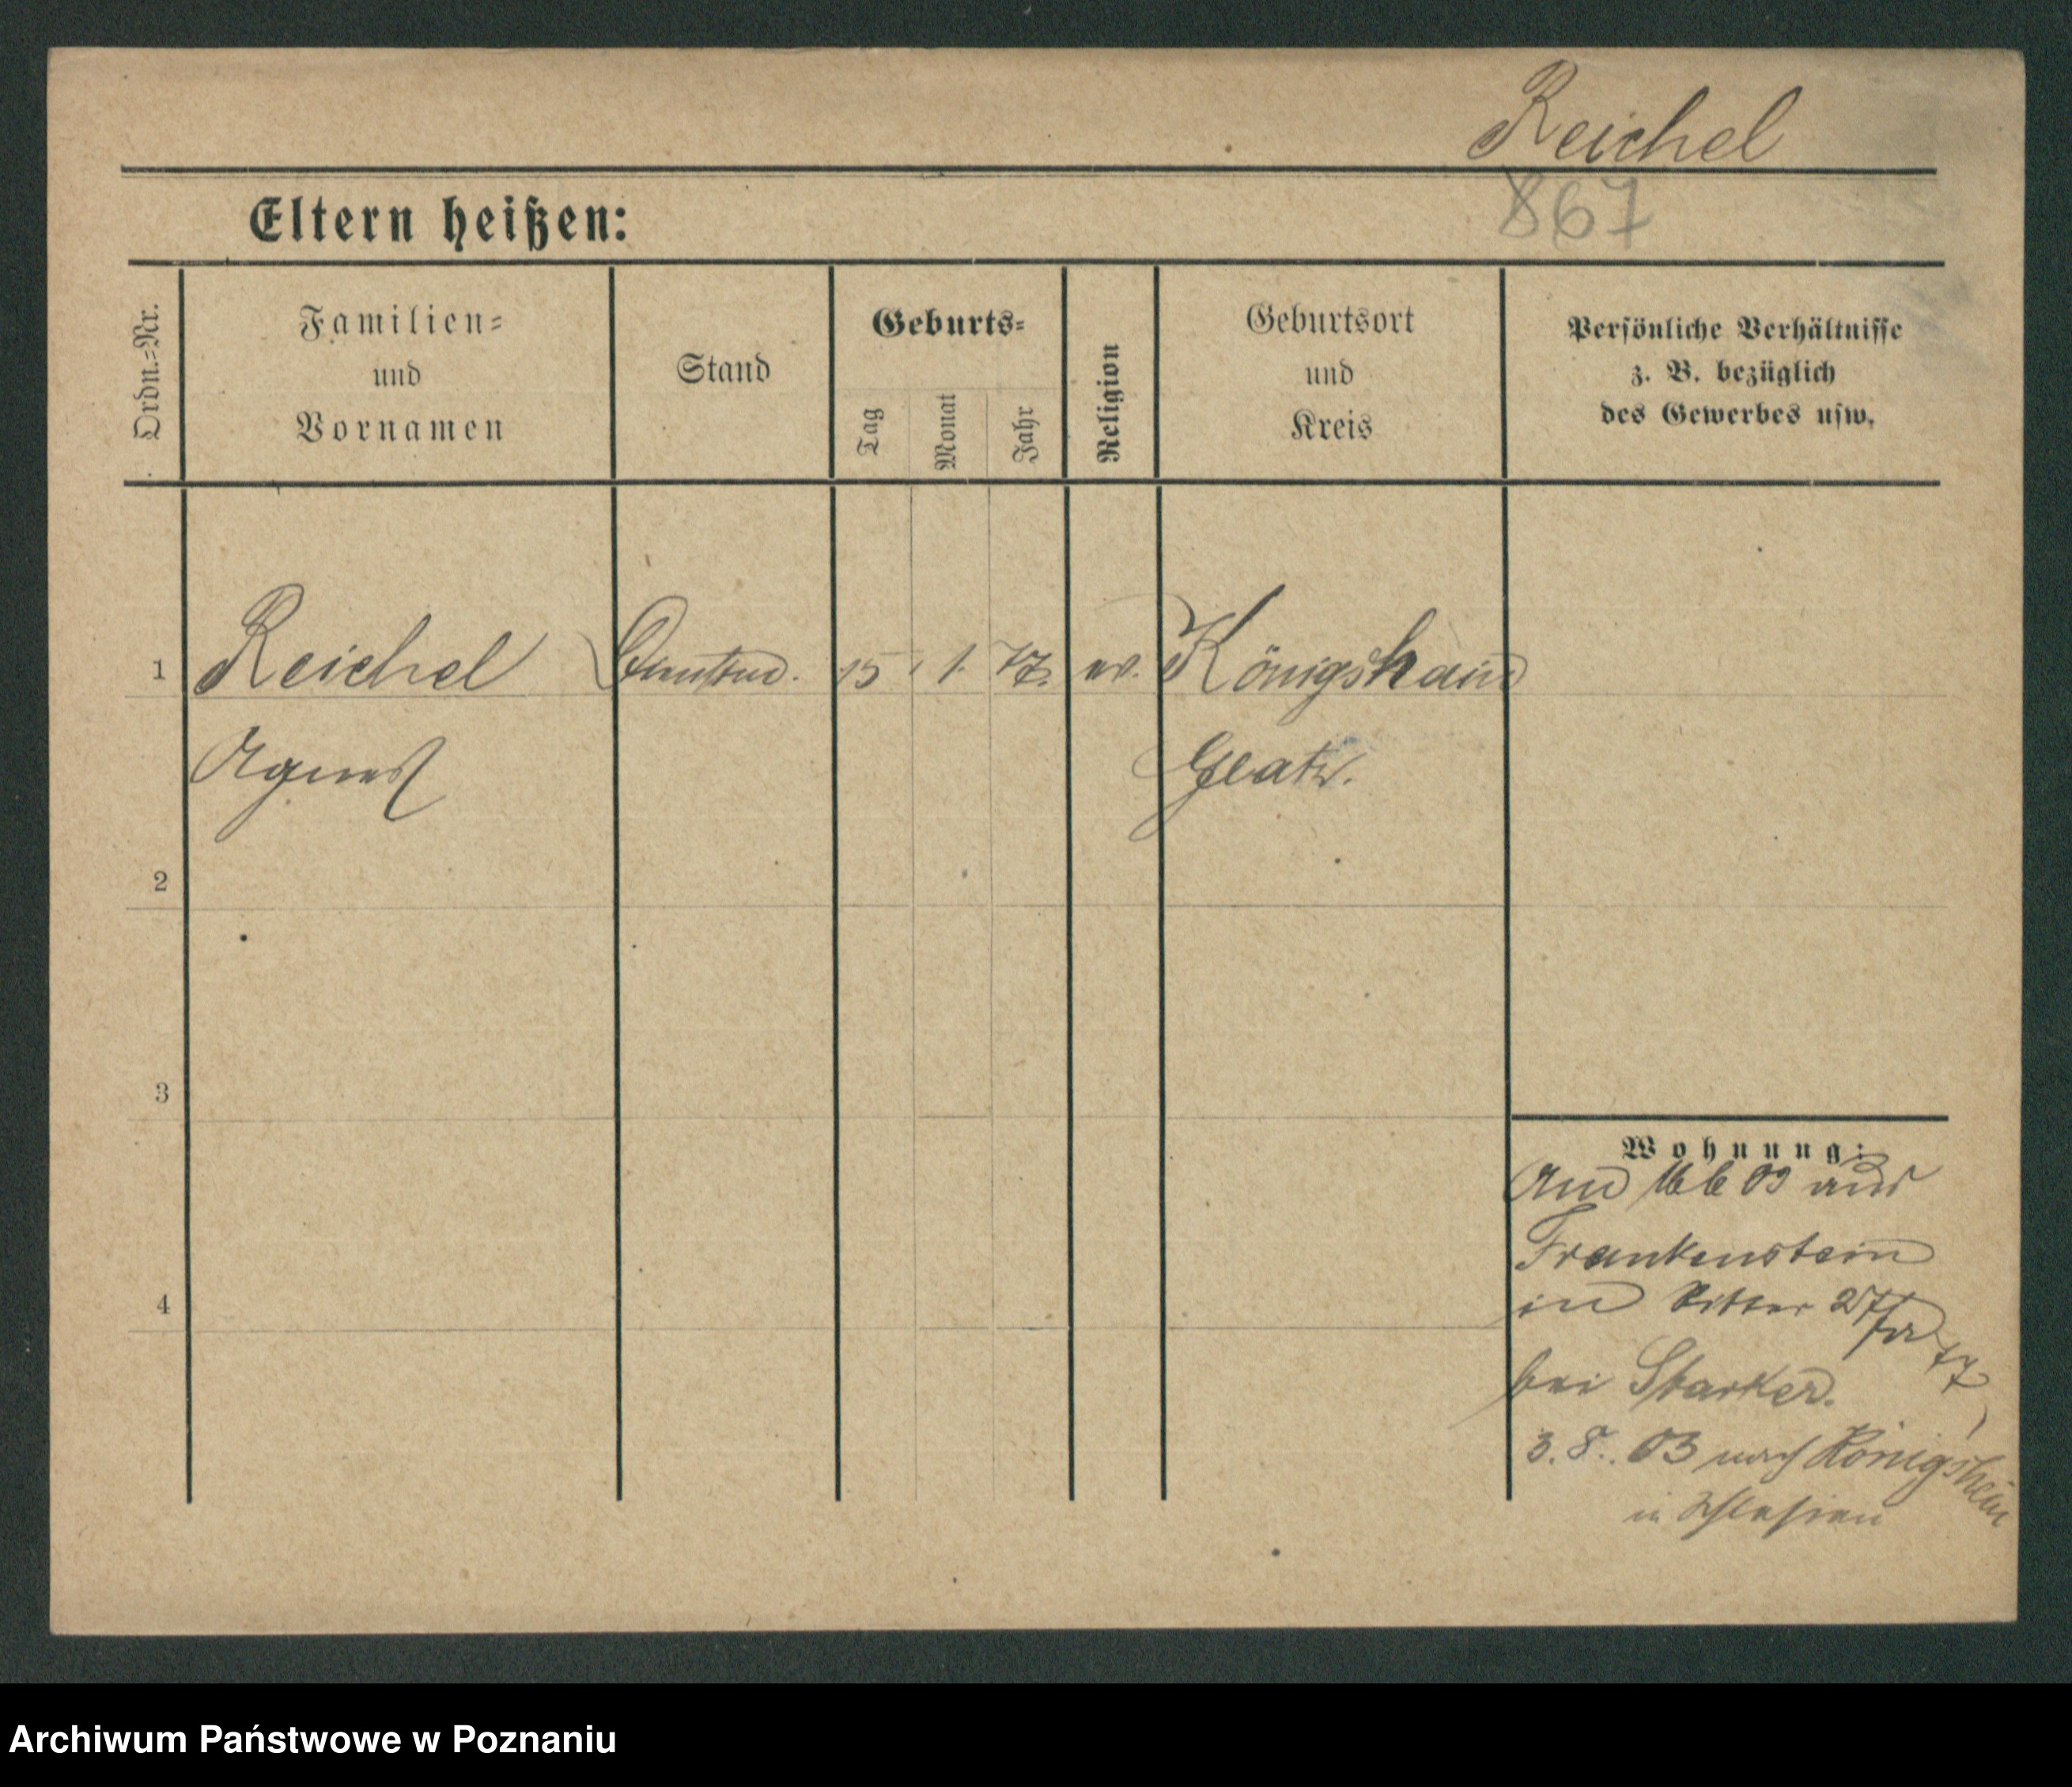 Reichel
867
Eltern heißen:
Ordn.=Nr.
Familien=
und
Vornamen
Stand
Geburts=
Tag
Monat
Jahr
Religion
Geburtsort
und
Kreis
Persönliche Verhältnisse
z. B. bezüglich
des Gewerbes usw.
1 Reichel 15. 1. 77. ev. Königshain
Agnes Glatz.
2
3
4
Wohnung:
Am 16 6 03 aus
Frankenstein
in Ritter 27
bei Starker.
3. 8. 03 nach Königshain
in Schlesien
Archiwum Państwowe w Poznaniu